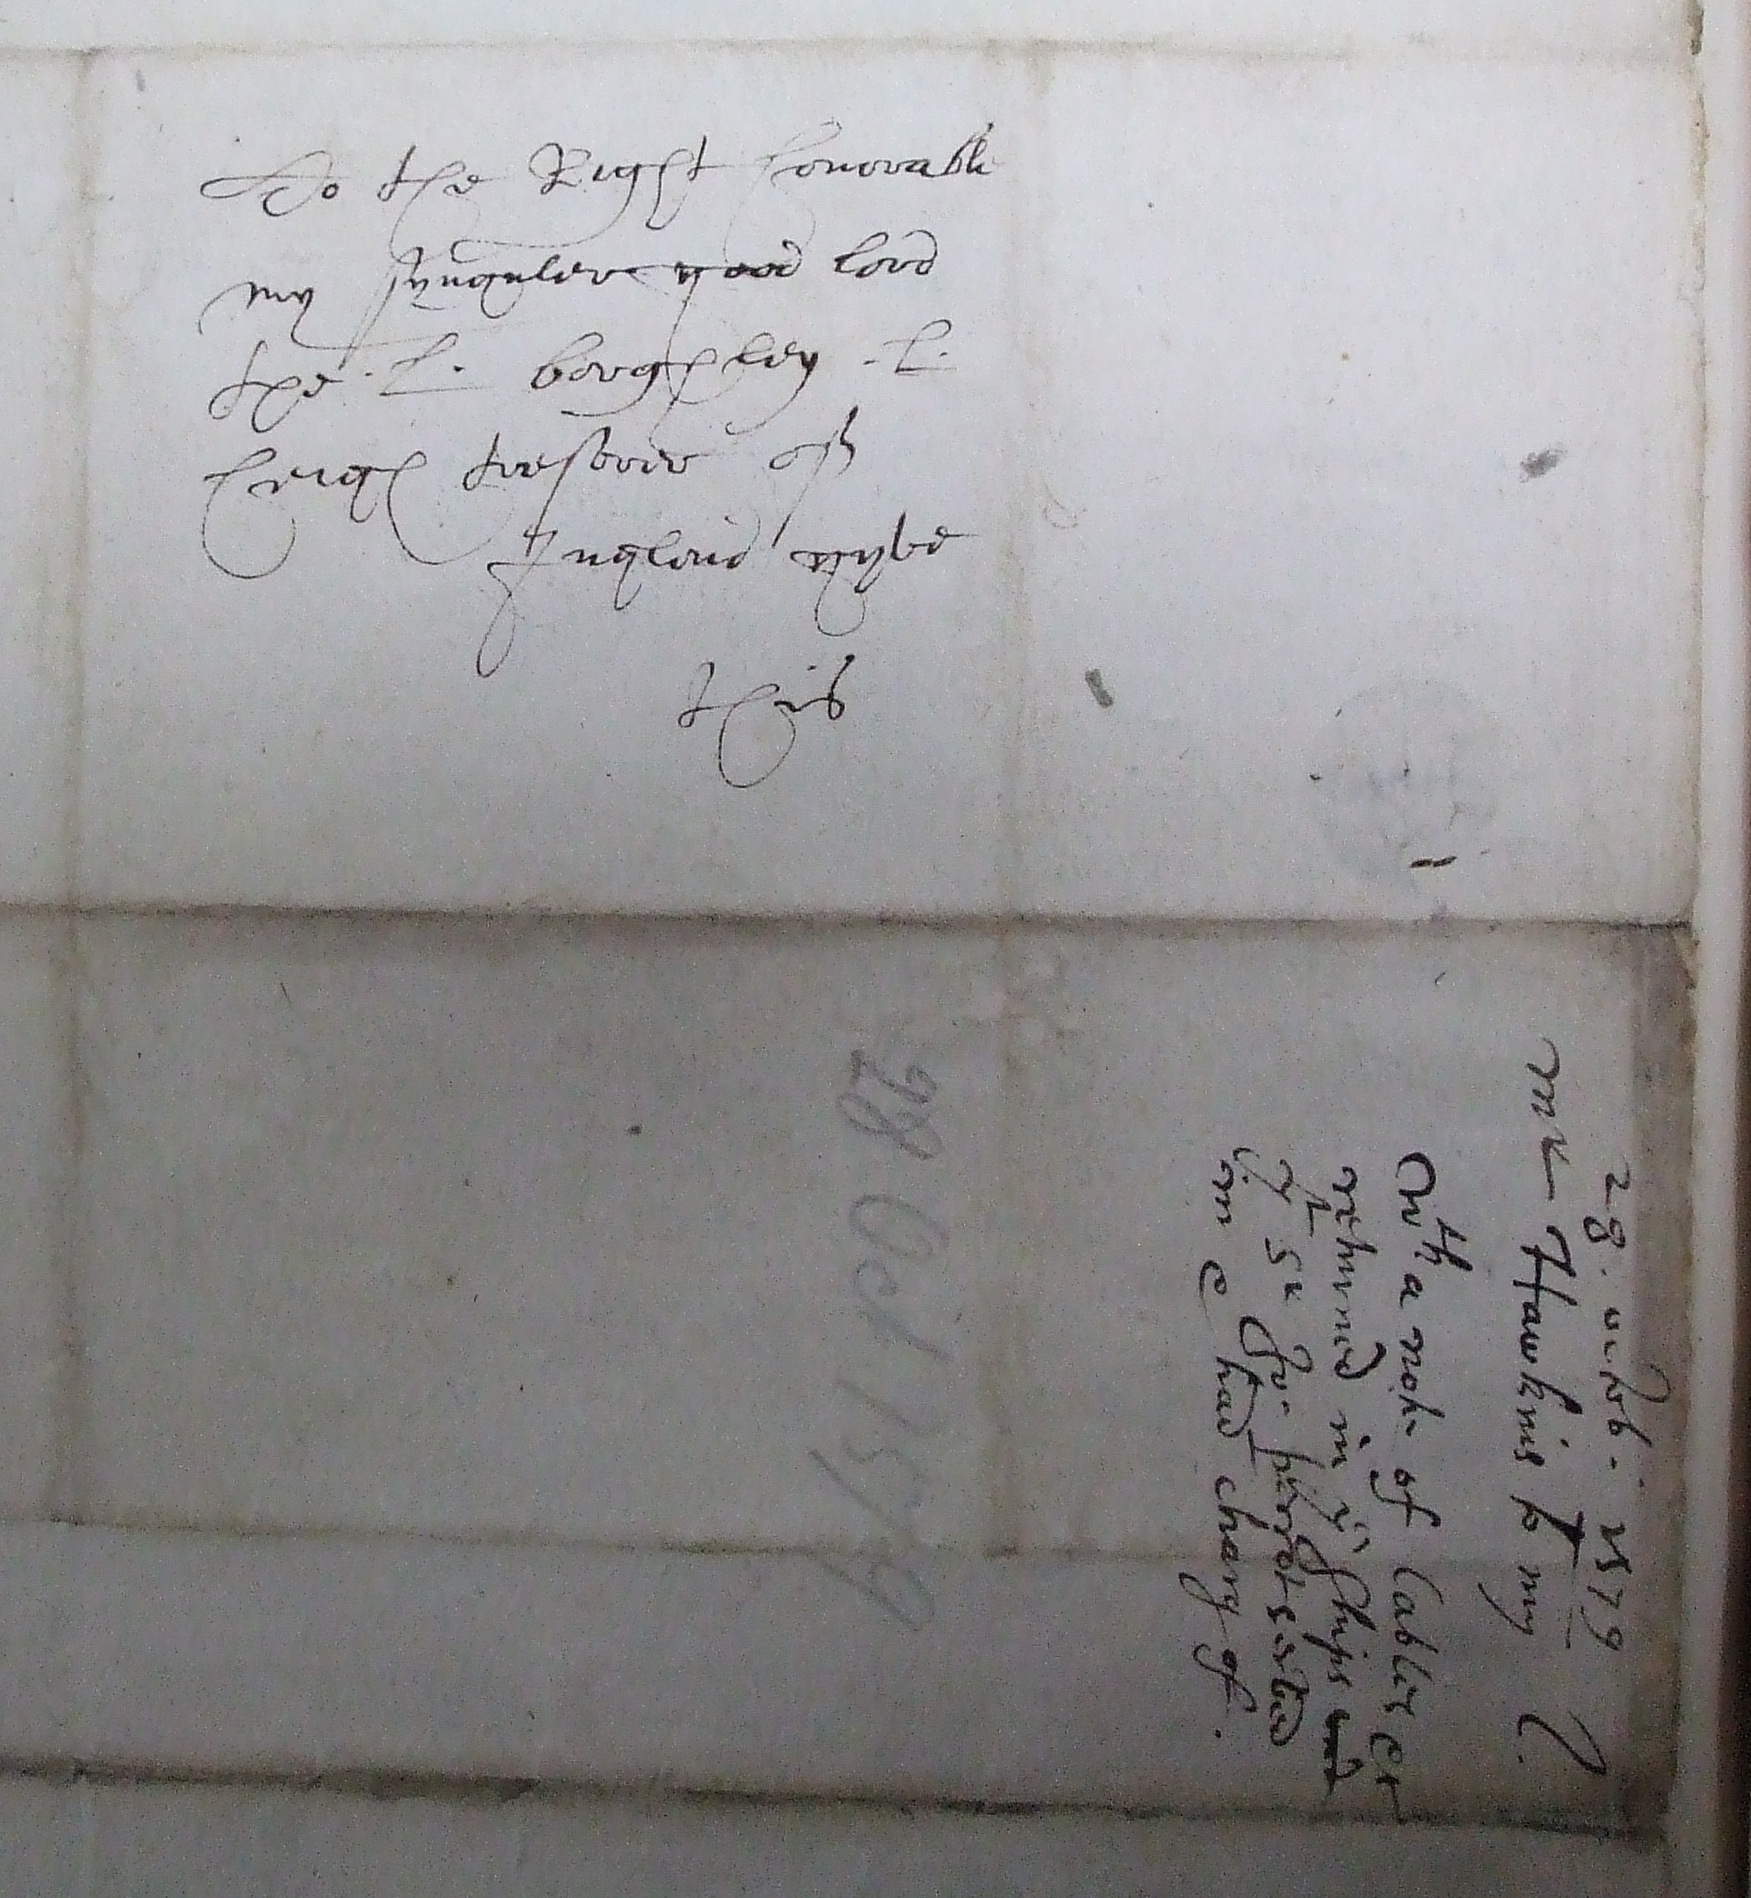 To the Right honorable
my synguler good lord
the .L. bourghley .L.
heigh tresorer off
Ingland gyve
this
28. octob. 1579
Mr Hawkins to my L.
Wth a note of Cables &c
returned in ye ships
yt Sr Jo. parrot
in c had charg of.
28 Oct 1579